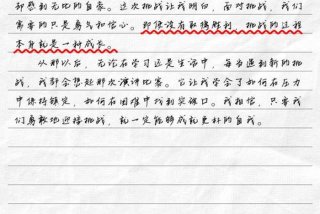 都感到无比的自豪。这次挑战让我明白，面对挑战，我们
需要的只是勇气和信心。即使没有取得胜利，挑战的过程
本身就是一种成长。
从那以后，无论在学习还是生活中，每当遇到新的挑
战，我都会想起那次演讲比赛。它让我学会了如何在压力
中保持镇定，如何在困难中找到突破口。我相信，只要我
们勇敢地迎接挑战，就一定能够成就更好的自我。